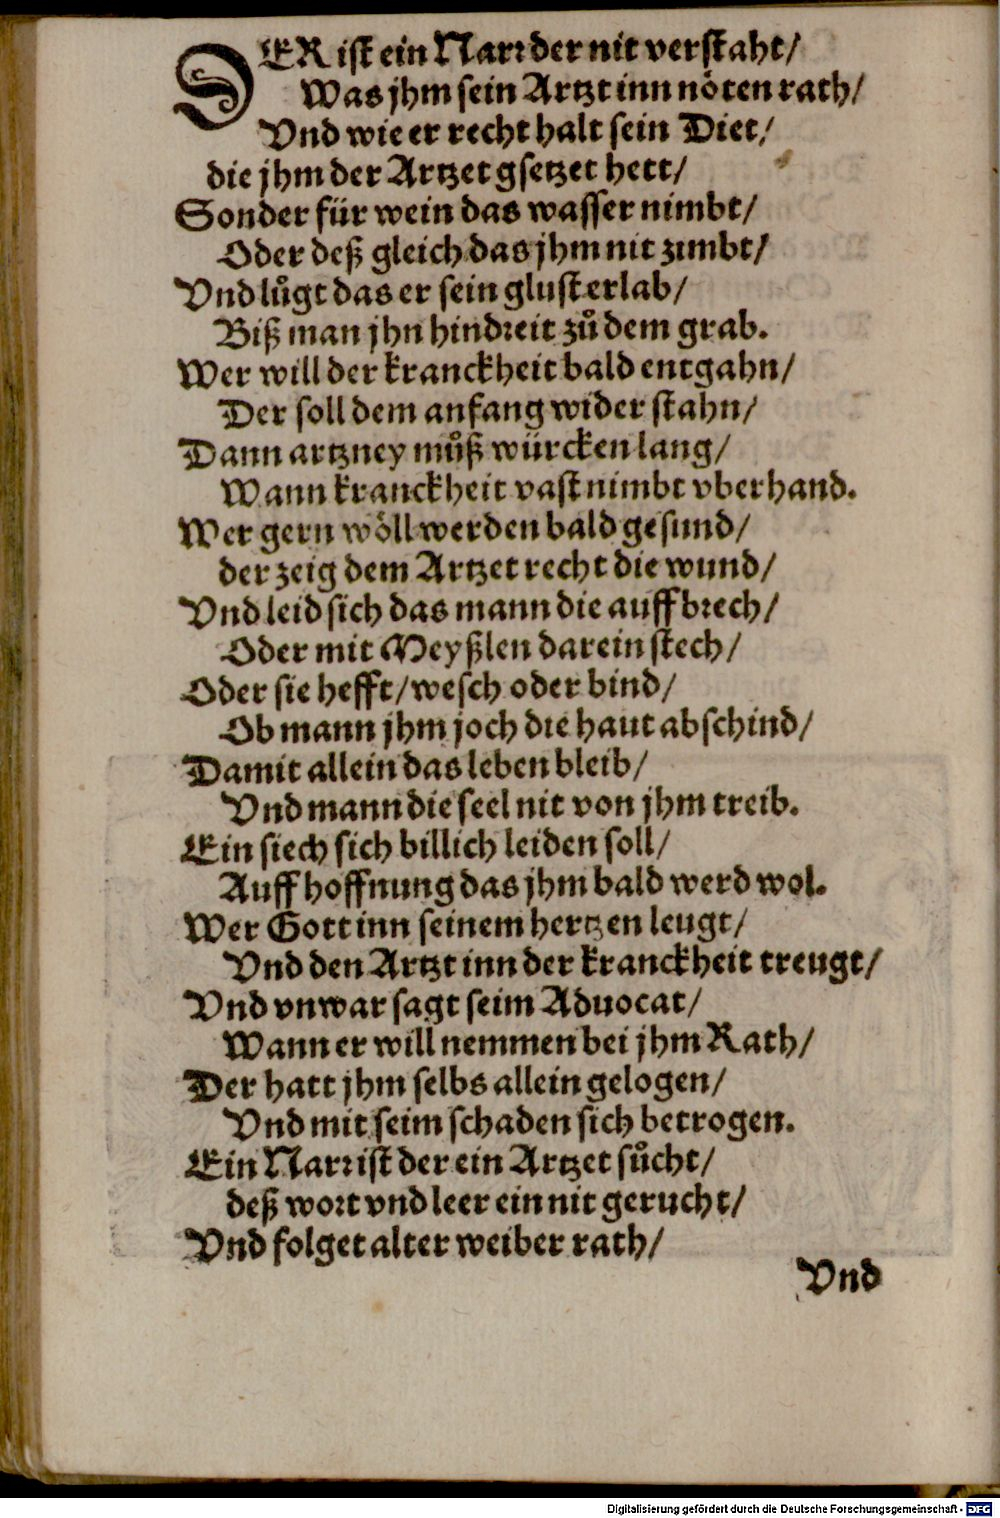 DER ist ein Narr der nit verstaht/
Was jhm sein Artzt inn nöten rath/
Vnd wie er recht halt sein Diet/
die jhm der Artzet gsetzet hett/
Sonder für wein das wasser nimbt/
Oder deß gleich das jhm nit zimbt/
Vnd lůgt das er sein glust erlab/
Biß man jhn hindreit zů dem grab.
Wer will der kranckheit bald entgahn/
Der soll dem anfang wider stahn/
Dann artzney můß würcken lang/
Wann kranckheit vast nimbt vberhand.
Wer gern wöll werden bald gesund/
der zeig dem Artzet recht die wund/
Vnd leid sich das mann die auffbrech/
Oder mit Meyßlen darein stech/
Oder sie hefft/wesch oder bind/
Ob mann jhm joch die haut abschind/
Damit allein das leben bleib/
Vnd mann die seel nit von jhm treib.
Ein siech sich billich leiden soll/
Auff hoffnung das jhm bald werd wol.
Wer Gott inn seinem hertzen leugt/
Vnd den Artzt inn der kranckheit treugt/
Vnd vnwar sagt seim Aduocat/
Wann er will nemmen bei jhm Rath/
Der hatt jhm selbs allein gelogen/
Vnd mit seim schaden sich betrogen.
Ein Narr ist der ein Artzet sůcht/
deß wort vnd leer ein nit gerucht/
Vnd folget alter weiber rath/
Vnd
Digitalisierung gefördert durch die Deutsche Forschungsgemeinschaft - DFG